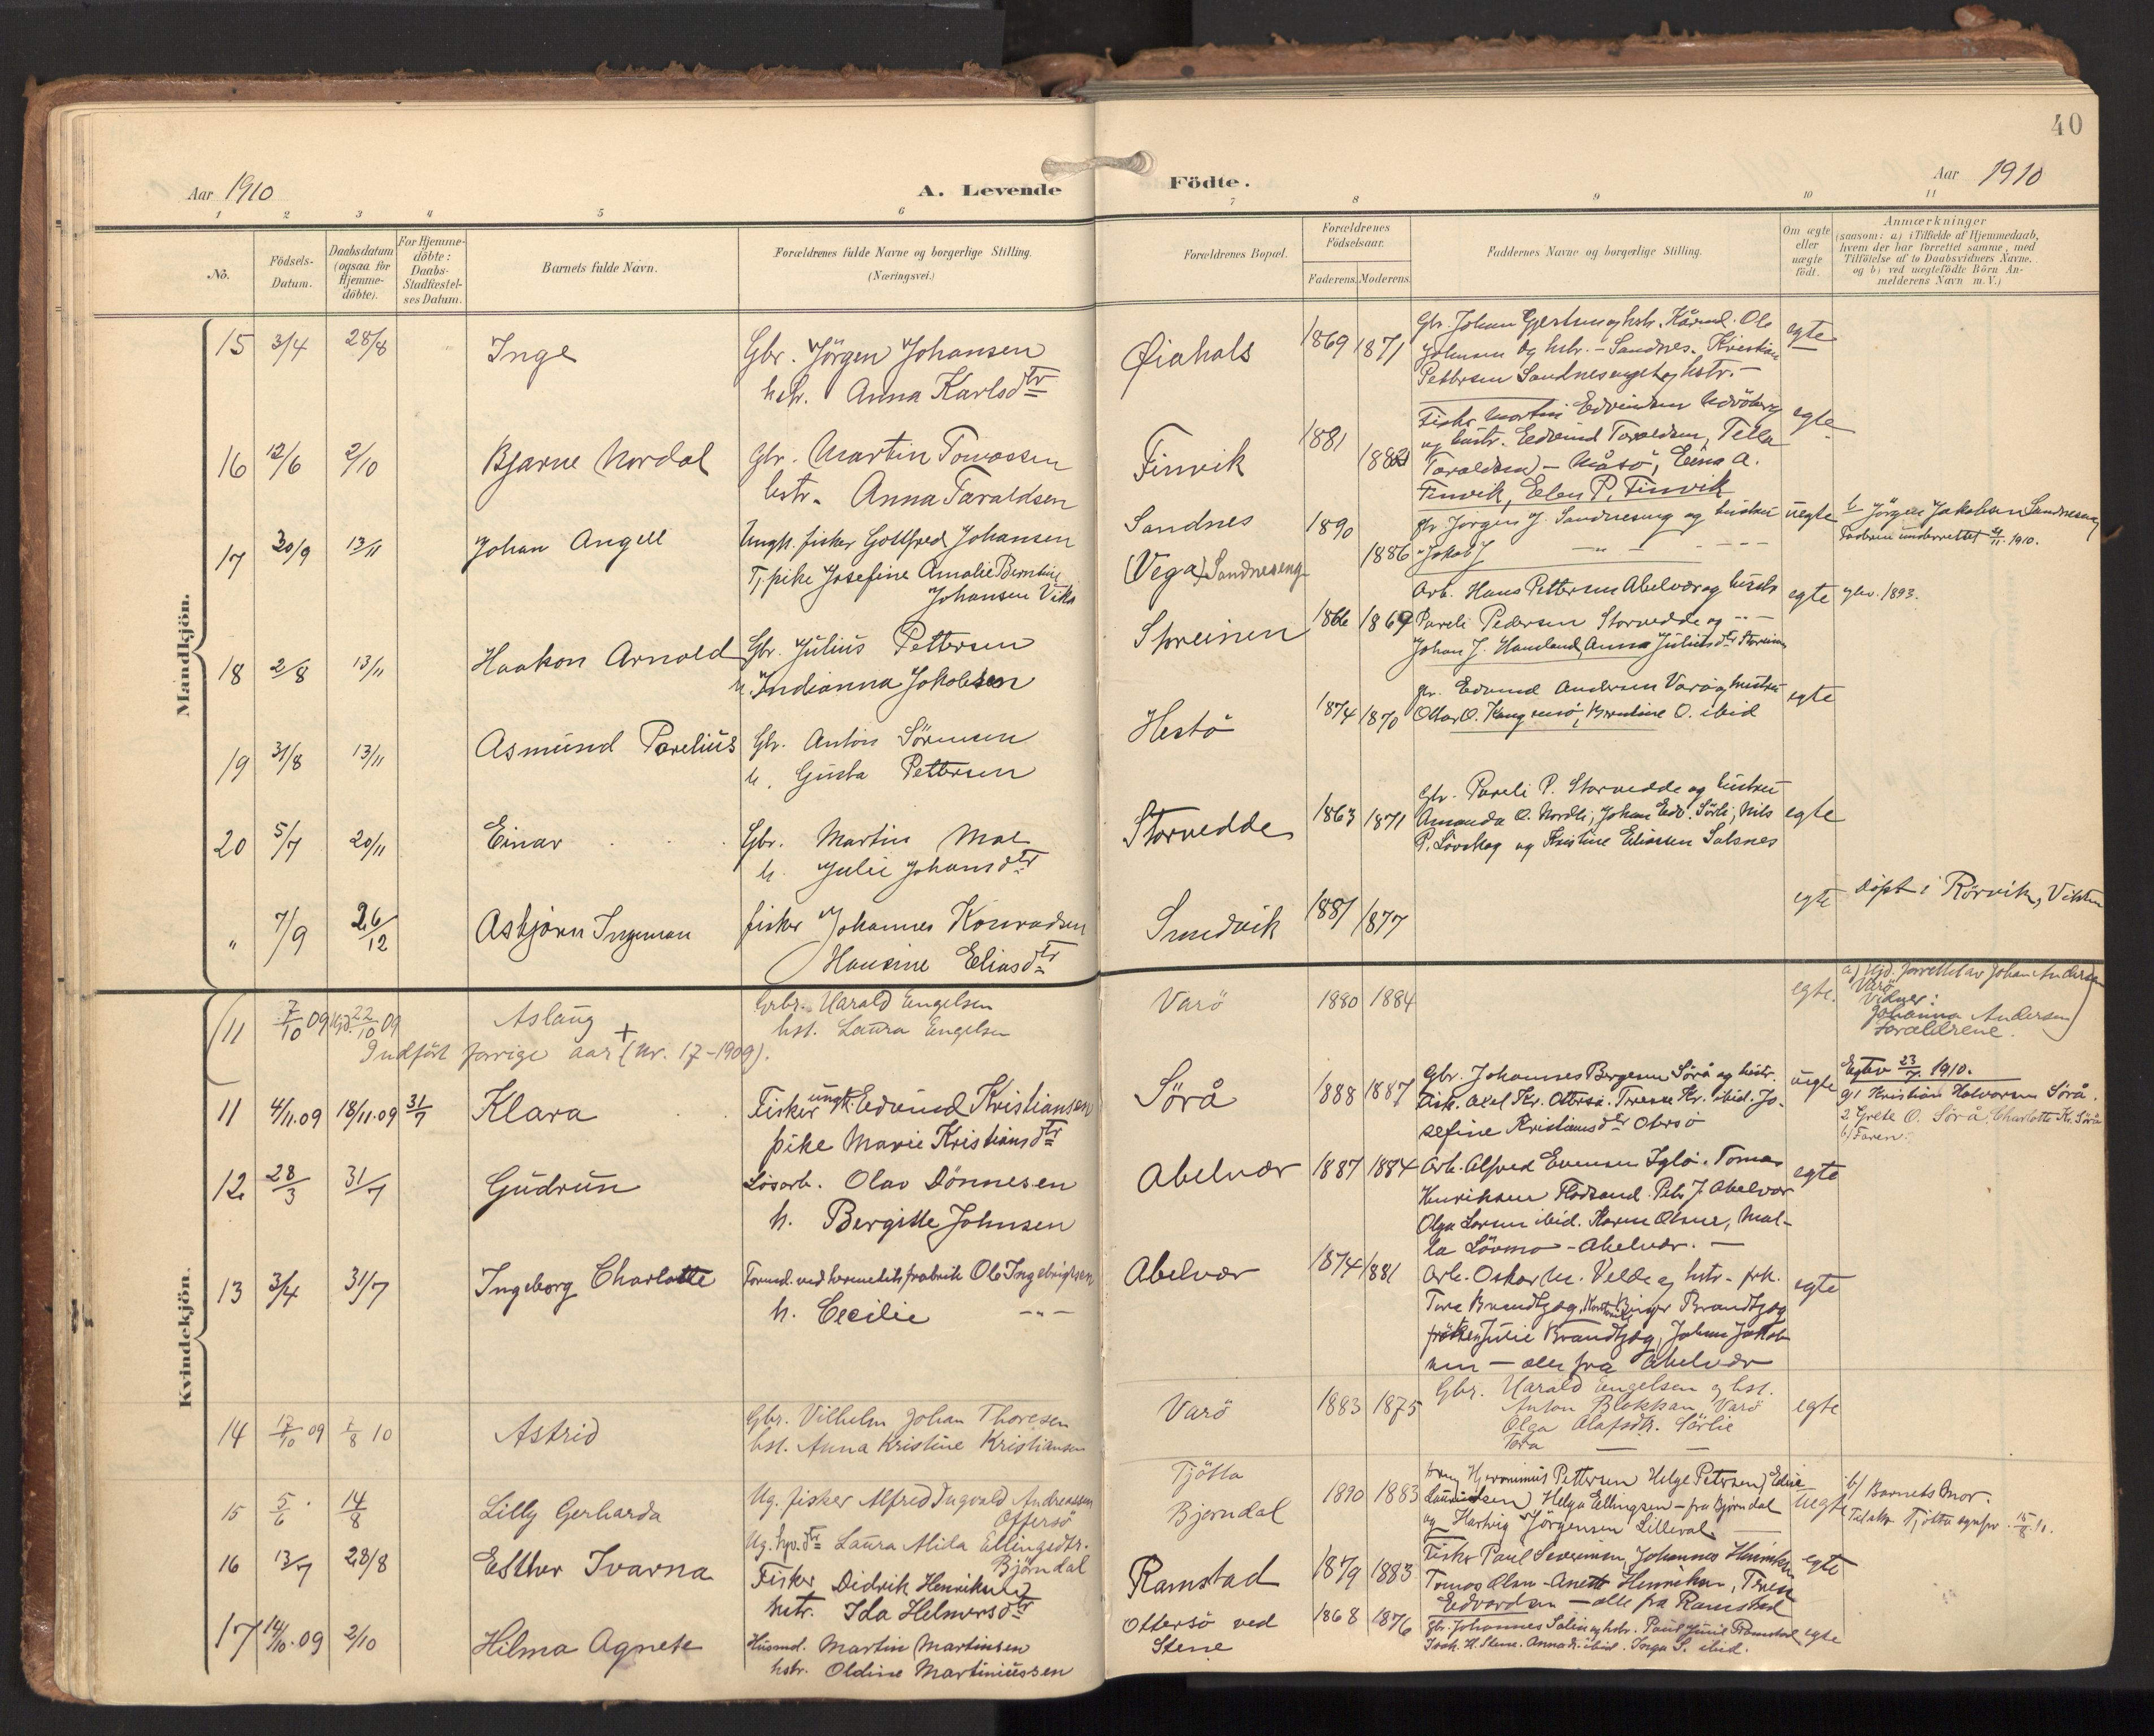 40
Aar 1910
A. Levende Födte.
Aar 1910
1 2 3 4 5 6 7 8 9 10 11
No.
Födsels-Datum.
Daabsdatum (ogsaa for Hjemme-döbte).
For Hjemme-döbte: Daabs-Stadfæstel-ses Datum.
Barnets fulde Navn.
Forældrenes fulde Navne og borgerlige Stilling. (Næringsvei.)
Forældrenes Bopæl.
Forældrenes Födselsaar.
Faderens. Moderens.
Faddernes Navne og borgerlige Stilling.
Om ægte eller uægte födt.
Anmærkninger
(saasom: a) i Tilfælde af Hjemmedaab, hvem der har forrettet samme, med Tilföielse af to Daabsvidners Navne. og b) ved uægtefödte Börn An-melderens Navn m. V.)
Mandkjön.
15 3/4 28/8 Inge
Gbr. Jörgen Johansen
hstr. Anna Karlsdtr
Øiahals 1869 1871
Gbr. Johan Gjertsen og hstr. Ole
Johnsen og hstr. - Sandnes. Kristian
Pettersen Sandnesenget og hstr. -
egte
16 12/6 2/10 Bjarne Nordal
Gbr. Martin Tomassen
hstr. Anna Taraldsen
Finvik 1881
Fisker Martin Edvindsen
og hustr. Edvind Taraldsen, Tella
Taraldsen - Måsø, Elina A.
Finvik, Elen P. Finvik
egte
17 20/9 13/11 Johan Angell
Ungk. fisker Gottfred Johansen
Tj. pike Josefine Amalie Berntine
Johansen Vika
Sandnes
(Vega) Sandneseng
1890 1886
gbr. Jörgen J. Sandneseng og hustru
" Jakob J — " —
uegte
b Jörgen Jakobsen Sandneseng
Faderen underrettet 1910.
18 2/8 13/11 Haakon Arnold
Gbr. Julius Pettersen
h. Indianna Jakobsen
Storeinen 1866 1869
Arb. Hans Pettersen Abelvær og hustr
Pareli Pedersen Storvedde og - " -
Johan J. Hamland, Anna Juliusdtr Storeinen
egte
glev. 1893.
19 31/8 13/11 Asmund Parelius
Gbr. Anton Sörensen
h. Gusta Pettersen
Hestö 1874 1870
gbr. Edvind Andersen Varø og hustru
Ottar O. Kongsmo, Berntine O. ibid
egte
20 5/7 20/11 Einar
Gbr. Martin Moe
h. Julie Johansdtr
Storvedde 1863 1871
Gbr. Pareli P. Storvedde og hustru
Amanda O. Nordli; Johan Edv. Sörli; Nils
P. Lövskog og Kristine Eliassen Salsnes
egte
" 7/9 26/12 Asbjörn Ingeman
fisker Johannes Konradsen
Hansine Eliasdtr
Sundvik 1881 1877
egte
Döpt i Rörvik, Vikten
Kvindekjön.
(11 7/10 09 Hjd. 22/10 09 Aslaug +
Gbr. Harald Engelsen
hst. Laura Engelsen
Indfört forrige aar (Nr. 17-1909).
Varö 1880 1884
egte.
a) Hjd. forrettet av Johan Andersen
Varö
Vidner:
Johanna Andersen
Forældrene.)
11 4/11.09 18/11.09 31/7 Klara
Fisker ungk. Edvind Kristiansen
pike Marie Kristiansdtr
Sörå 1888 1887
Gbr. Johannes Bergesen Sörå og hustr.
Fisk. Axel Kr. Ottersö. Trense Kr. ibid. Jo-
sefine Kristiansdtr Otersö
uegte
Egtev 23/7. 1910.
g. 1 Kristian Halvorsen Sörå.
2 Grete O. Sörå. Charlotte Kr. Sörå
b) Faren.
12 28/3 31/7 Gudrun
Lösarb. Olav Dönnesen
h. Bergitte Johnsen
Abelvær 1887 1884
Arb. Alfred Evensen Iglö. Tomas
Henriksen Flosand. Petr J. Abelvær
Olga Larsen ibid. Karen Olsine, Mal-
la Lövmo - Abelvær. -
egte
13 3/4 31/7 Ingeborg Charlotte
Formd. ved hermetikfrabrik Ole Ingebrigtsen
h. Cecilie - " -
Abelvær 1874 1881
Arb. Oskar M. Velde og hstr. frk.
Tora Brandtzæg, Kontorist Birger Brandtzæg
fröken Julie Brandtzæg, Johan Jakob-
sen - alle fra Abelvær
egte
14 17/10 09 7/8 10 Astrid
Gbr. Vilhelm Johan Thoresen
hst. Anna Kristine Kristiansen
Varö 1883 1875
Gbr. Harald Engelsen og hst.
Anton Blakkan, Varö
Olga Olafsdtr. Sörlie
Tora — —
egte
15 5/6 14/8 Lilly Gerharda
Ug. fisker Alfred Ingvald Andreassen
Ottersö
Ug. Gpr. dtr Laura Alida Ellingsdtr.
Björndal
Tjötta
Bjerndal
1890 1883
Hjeronimus Pettersen Helge Petersen, Edvin
Lauritsen, Helga Ellingsen - fra Bjørndal
og Hartvig Jörgensen Lilleval
uegte
b) Barnets Mor.
Tilskr. Tjötta sogn 15/8 11.
16 13/7 28/8 Esther Ivarna
Fisker Didrik Henriksen
hstr. Ida Helmersdtr
Ramstad 1879 1883
Fisker Paul Severinsen, Johannes Henriksen
Tomas Olsen - Anette Henriksen, Trine
Edvardsen - alle fra Ramstad
egte
17 14/10.09 2/10 Hilma Agnete
Husmd. Martin Martinsen
hstr. Oldine Martiniussen
Ottersö ved
Stene
1868 1876
Gbr. Johannes Salin og hstr. Paul Juul Ramstad
Joak. H. Stene. Anna D. ibid. Inga S. ibid.
egte